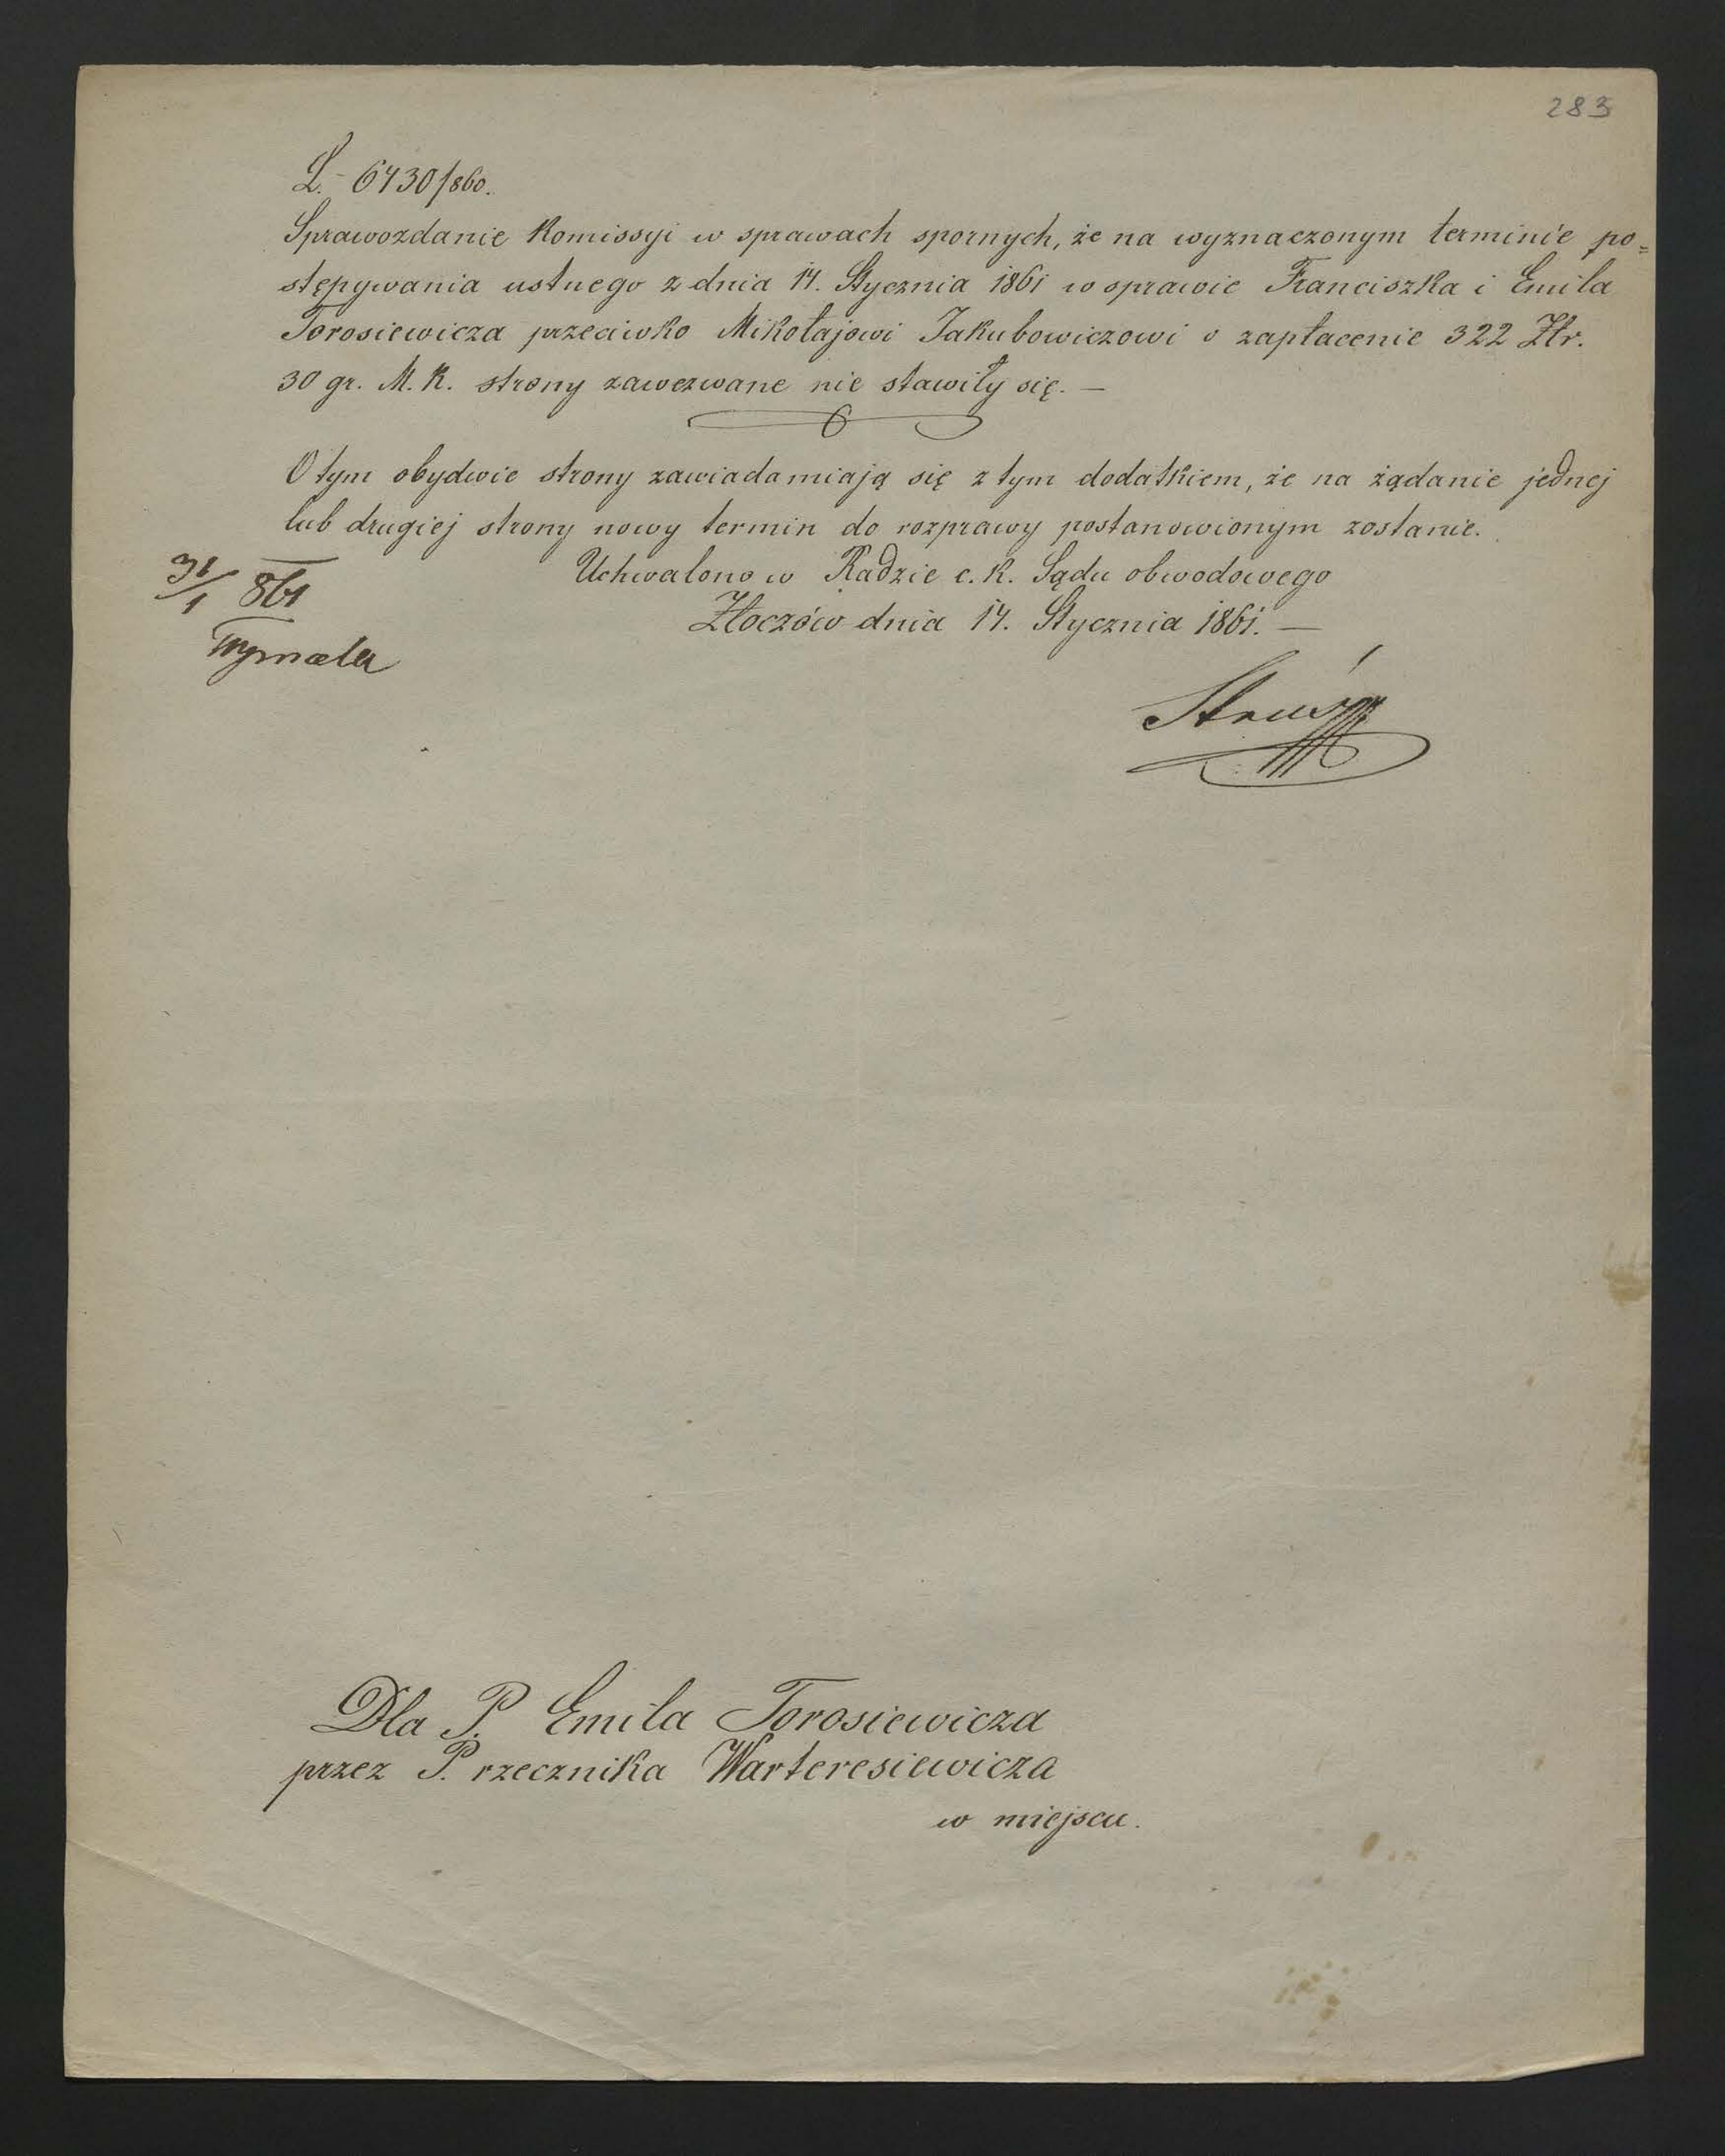 283
L. 6430/860.
Sprawozdanie Komissyi w sprawach spornych, że na wyznaczonym terminie po=
stępywania ustnego z dnia 14. Stycznia 1861 w sprawie Franciszka i Emila
Torosiewicza przeciwko Mikołajowi Jakubowiczowi o zapłacenie 322 Złr.
30 gr. M. K. strony zawezwane nie stawiły się. —
O tym obydwie strony zawiadamiają się z tym dodatkiem, że na żądanie jednej
lub drugiej strony nowy termin do rozprawy postanowionym zostanie.
Uchwalono w Radzie c. k. Sądu obwodowego
Złoczów dnia 14. Stycznia 1861. —
31/1 861
Dla P. Emila Torosiewicza
przez P. rzecznika Warteresiewicza
w miejscu.